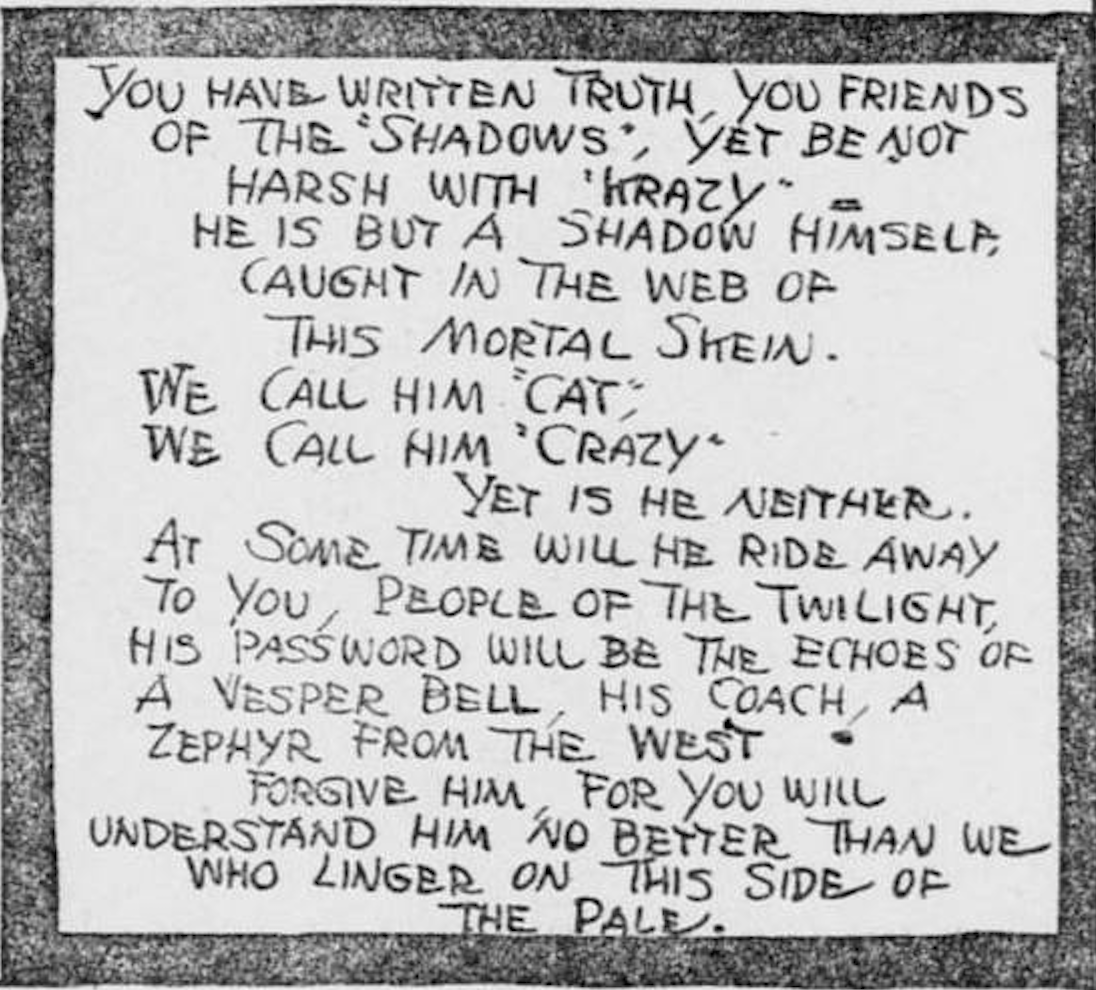 YOU HAVE WRITTEN TRUTH, YOU FRIENDS
OF THE "SHADOWS", YET BE NOT
HARSH WITH "KRAZY" =
HE IS BUT A SHADOW HIMSELF,
CAUGHT IN THE WEB OF
THIS MORTAL SKEIN.
WE CALL HIM "CAT,"
WE CALL HIM "CRAZY"
YET IS HE NEITHER.
AT SOME TIME WILL HE RIDE AWAY
TO YOU, PEOPLE OF THE TWILIGHT,
HIS PASSWORD WILL BE THE ECHOES OF
A VESPER BELL, HIS COACH, A
ZEPHYR FROM THE WEST .
FORGIVE HIM, FOR YOU WILL
UNDERSTAND HIM NO BETTER THAN WE
WHO LINGER ON THIS SIDE OF
THE PALE.